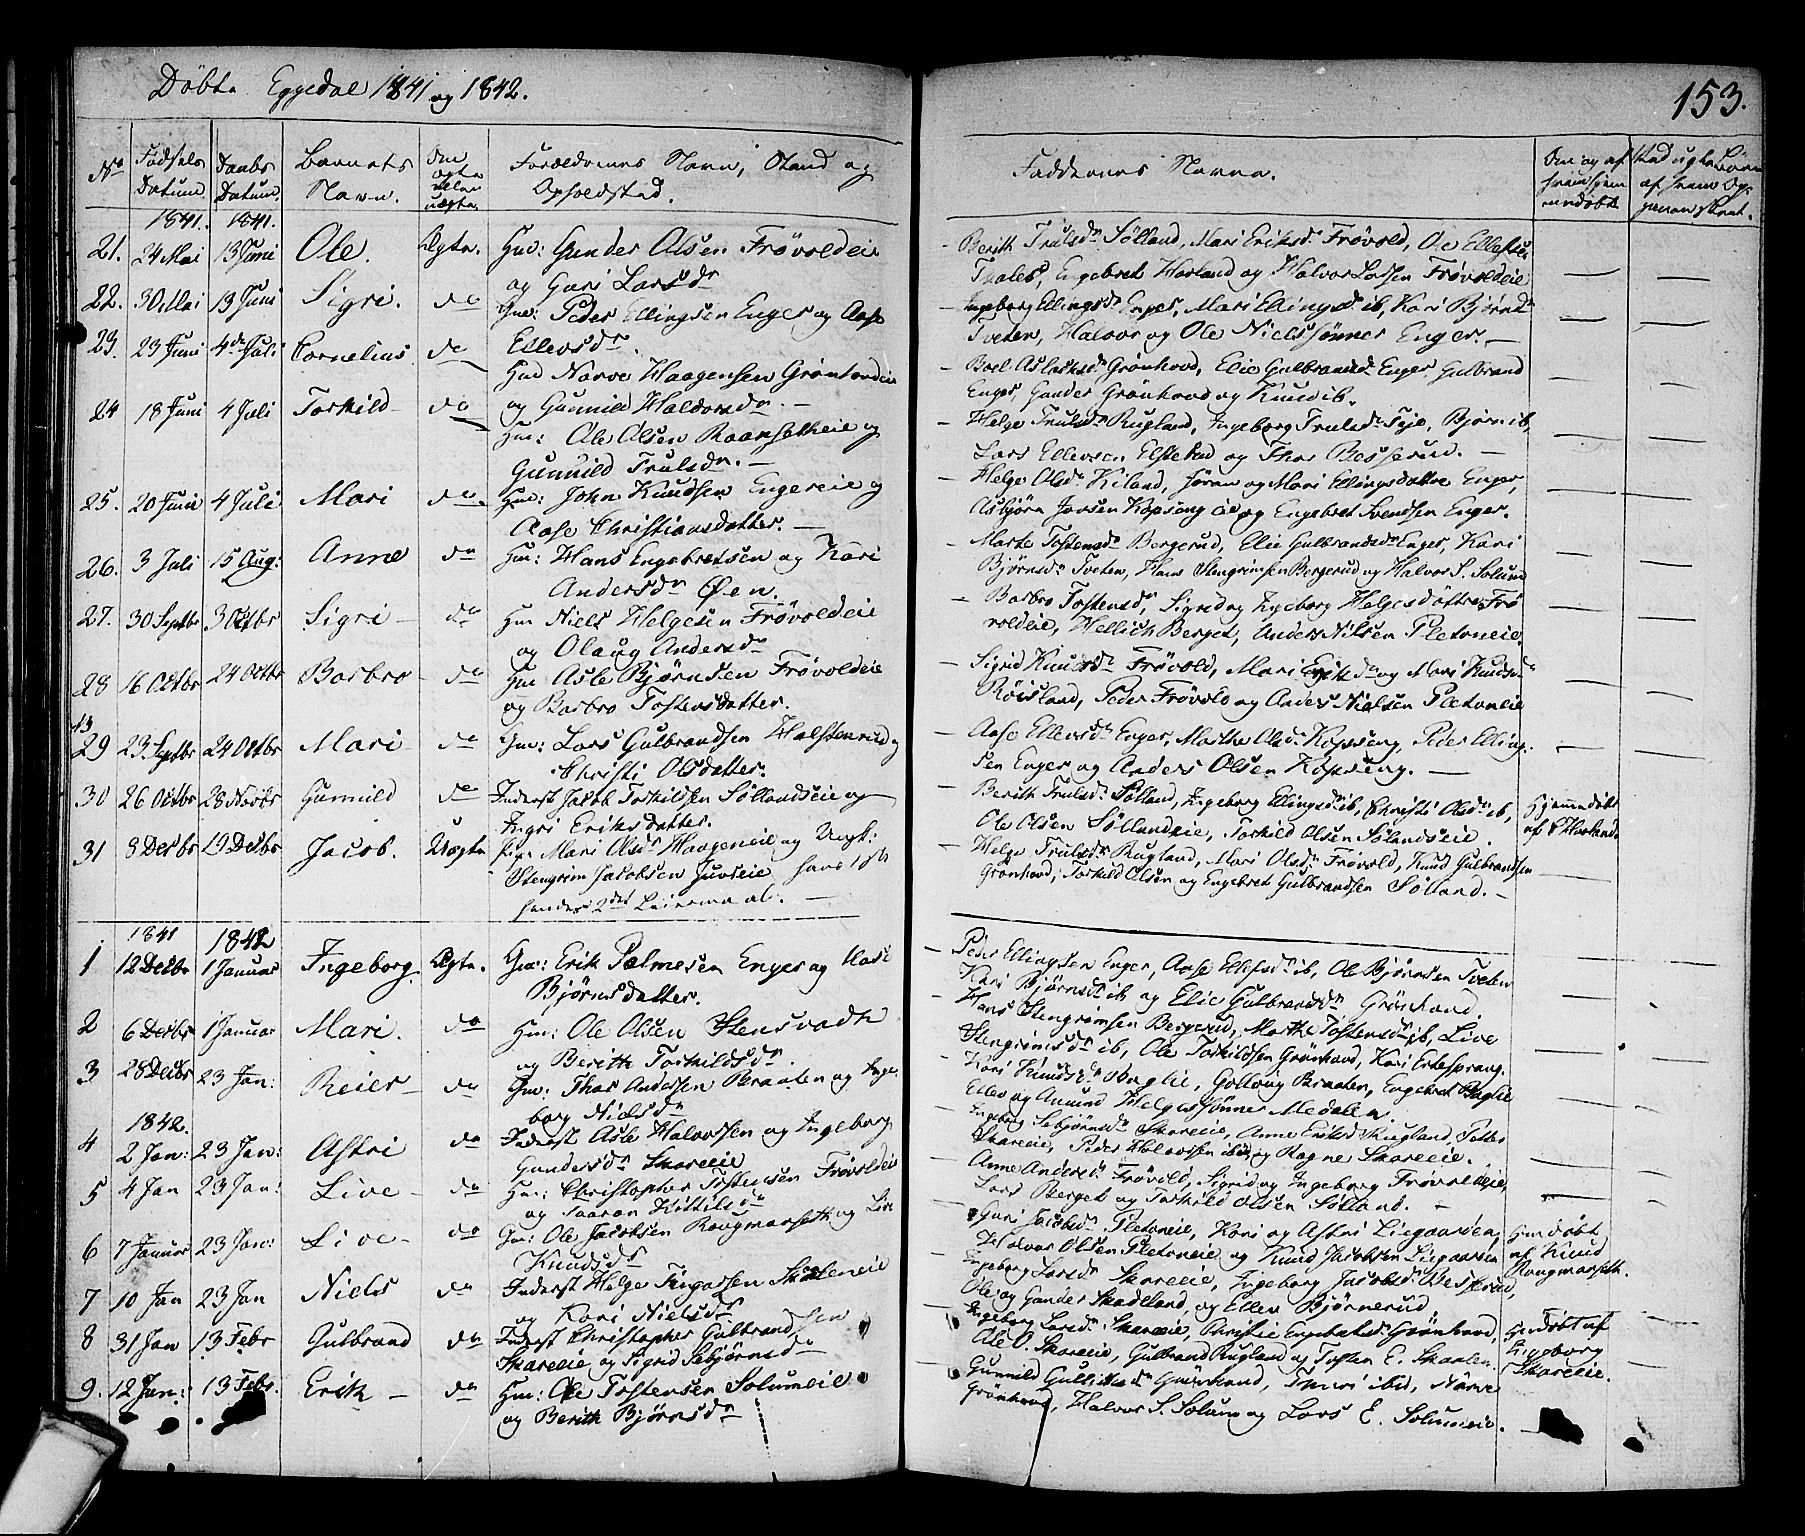 Döbte Eggedal 1841 og 1842.
153.
No
Fødsels Datum.
Daabs Datum.
Barnets Navn.
Om ægte eller uægte.
Forældrenes Navn, Stand og Opholdsted.
Faddernes Navne.
1841. 1841.
21. 24 Mai 13 Juni Ole. Ægte. Gm: Gunder Olsen Frövoldeie
og Guri Larsdr
Berith Trulsdr Sölland, Mari Eriksdr Frövold, Ole Ellefsen
Engebret Horland og Halvor Larsen Frövoldeie
22. 30 Mai 13 Juni Sigri. do Gm: Peder Ellingsen Enger og Aase
Ellevsdr.
Ingeborg Ellingsdr Enger, Mari Ellingsdr ib, Kari Bjørnsdr
Tveten, Halvor og Ole Nielssönner Enger.
23. 23 Juni 4de Juli Cornelius do Gm Narve Haagensen Grönhovdeie
og Gunnild Haldorsdr.
Boel Aslaksdr Grönhovd, Elie Gulbrandsd Enger, Gulbrand
Enger, Gunder Grönhovd og Knud ib.
24 18 Juni 4 Juli Torkild do Gm: Ole Olsen Raansetheie og
Gunnild Trulsdr.
Helge Trulsdr Rugland, Ingeborg Trulsdr Teje, Bjørn ib,
Lars Ellevsen Elsterud og Thor Besserud.
25. 20 Juni 4 Juli Mari do. Gm: John Knudsen Engereie og
Aase Christiansdatter.
Helge Olsdr Kiland, Jöran og Mari Ellingsdøttre Enger,
Asbjörn Jorsen Kopseng eie og Engebret Svendsen Enger.
26. 3 Juli 15 Aug: Anne do Gm: Hans Engebretsen og Kari
Andersdr Øen.
Marte Tostensdr Bergerud, Elie Gulbrandsdr Enger, Kari
Bjørnsdr Tveten, Hans Stengrimsen Bergerud og Halvor S. Solum
27. 30 Septbr 3 Octbr Sigri do Gm Niels Helgesen Frövoldeie
og Olaug Andersdr
Barbro Tostensdr, Sigrid og Ingeborg Helgesdöttre Frö
voldeie, Hellich Berget, Anders Nilsen Pletoneie
28 16 Octbr 24 Octbr Barbro do Gm Asle Bjørnsen Frövoldeie
og Barbro Tostensdatter.
Sigrid Knudsdr Frövold, Mari Eriksdr og Mari Knudsdr
Röisland, Peder Frövold og Anders Nielsen Pletoneie
29 23. Septbr 24 Octbr Mari do Gm: Lars Gulbrandsen Halstenrud og
Christi Olsdatter.
Aase Ellevsdr Enger, Marthe Olsdr Kopseng, Peder Elling-
sen Enger og Anders Olsen Kopseng.
30 26 Octbr 28 Novbr Gunnild do Inderst Jacob Torkildsen Söllandseie og
Ingri Eriksdatter.
Berith Trulsdr Sölland, Ingeborg Ellingsdr ib, Christi Olsdr ib,
Ole Olsen Söllandeie, Torkild Olsen Sölandseie.
Hjemmedöbt
31 8 Decbr 19 Decbr Jacob. Uægte Pige: Mari Olsdr Haageneie og Ungk:
Stengrim Jacobsen Juvseie hans 1ste
hendes 2det Leiermaal.
Helge Trulsdr Rugland, Mari Olsdr Frövold, Knud Gulbrandsen
Grönhovd, Torkild Olsen og Engebret Gulbrandsen Sölland.
1841 1842
1 12 Decbr 1 Januar Ingeborg. Ægte. Gm: Erik Palmesen Enger og Kari
Bjørnsdatter.
Peder Ellingsen Enger, Aase Ellefsdr ib, Ole Bjørnsen Tveten
Kari Bjørnsdr ib og Elie Gulbrandsdr Grönhovd.
2 6 Decbr 1 Januar Mari. do Gm: Ole Olsen Stensvadh
og Berith Torkildsdr.
Hans Stengrimsen Bergerud, Marthe Tostensdr ib, Live
Stengrimsdr ib, Ole Torkildsen Grönhovd, Kari Ertesprang.
3 28 Decbr 23 Jan: Reier do Gm: Thor Andersen Braaten og Inge-
borg Nielsdr
Kari Knudsdr Veglie, Gollaug Braaten, Engebret Veglie
Ellev og Amund Helgesönner Medalen.
1842.
4 2 Jan: 23 Jan: Astri do Inderst Asle Halvorsen og Ingeborg
Gundersdr Skareeie
Ingeborg Sebjørnsdr Skareeie, Anne Eriksd Rugland,
Skareeie, Peder Halvorsen ibid, og Ragne Skareeie.
5 4 Jan 23 Jan: Live do Gm: Christopher Tostensen Frövoldeie
og Kittilsdr
Anne Andersdr Frövold, Sigrid og Ingeborg Frövoldeie,
Lars Berget og Torkild Olsen Sölland.
6 7 Januar 23 Jan: Live do Gm: Ole Jacobsen Rougmarseth og Live
Knudsdr
Guri Jacobsdr Pletoneie, Kari og Astri Liegaarden,
Halvor Olsen Pletoneie og Knud Jacobsen Liegaarden
Hmdöbt
af Knud
Rougmarseth.
7 10 Jan 23 Jan Niels do Inderst Helge Skaleneie
og Kari Nielsdr
Ingeborg Larsdr Skareeie, Ingeborg Jacobsdr Besserud,
Ole og Gunder Skadeland, og Ellen Bjørnerud
8 31 Jan 13 Febr Gulbrand do Inderst Christopher Gulbrandsen
Skareeie og Sigrid Sebjørnsdr
Ingeborg Larsdr Skareeie, Christie Engebretsdr Grönhovd,
Ole O. Skareeie, Gulbrand Rugland og Tosten E. Skaalen.
Hmdöbt af
Ingeborg
Skareeie.
9. 12 Jan: 13 Febr. Erik do Gm: Ole Tostensen Solumeie
og Berith Bjørnsdr
Gunnild Grönhovd, ibid, Narve
Grönhovd, Halvor S. Solum og Lars E. Solumeie.